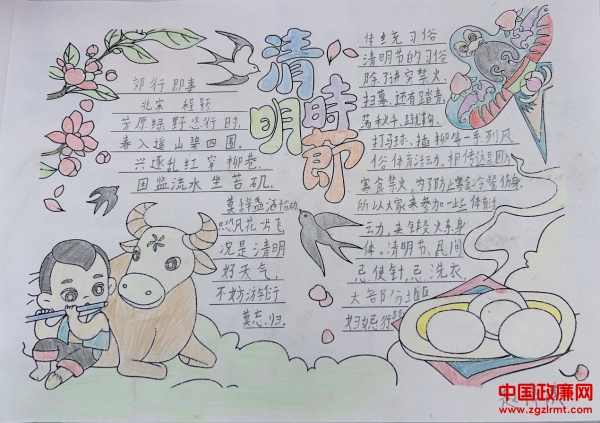 清明時節
郊行即事
北宋 程颢
芳原绿野恣行时,
春入遥山碧四围。
兴逐乱红穿柳巷,
困临流水坐苔矶。
莫辞盏酒十
恐风花片飞
况是清明
好天气
不妨游衍
莫忘归.
传统习俗
清明节的习俗
除了讲究禁火、
扫墓,还有踏青、
荡秋千、蹴鞠、
打马球、插柳等一系列风
俗体育活动。相传这是因为
寒食禁火,为了防止寒食冷餐伤身,
所以大家来参加一些体育
云动,来锻炼身
体。清明节,民间
忌使针,忌洗衣,
大部分地区
妇女忌行路
中国政廉网
www.zgzlrmt.com